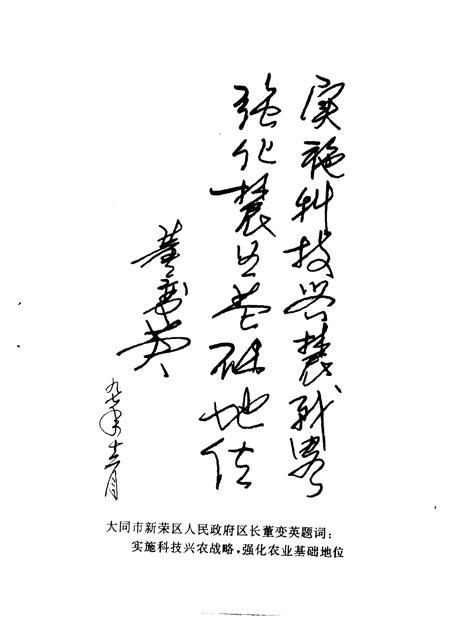 实施科技兴農战略
强化農业基础地位
董变英
九七年十二月
大同市新荣区人民政府区长董变英题词：
实施科技兴农战略，强化农业基础地位